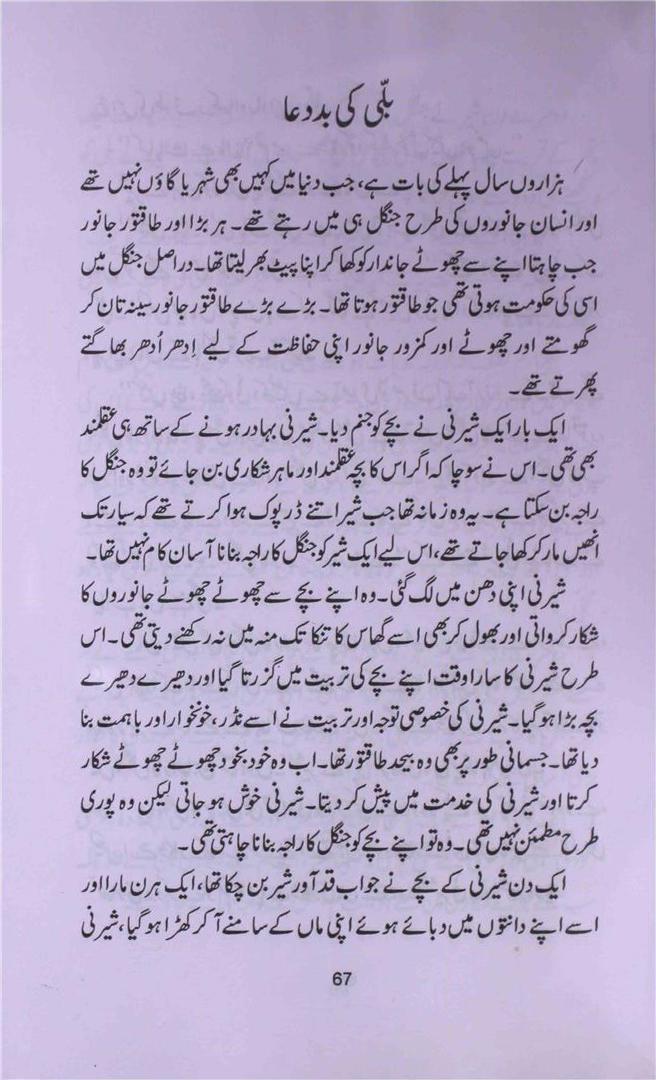 بلّی کی بددعا
ہزاروں سال پہلے کی بات ہے، جب دنیا میں کہیں بھی شہر یا گاؤں نہیں تھے
اور انسان جانوروں کی طرح جنگل ہی میں رہتے تھے۔ ہر بڑا اور طاقتور جانور
جب چاہتا اپنے سے چھوٹے جاندار کو کھا کر اپنا پیٹ بھر لیتا تھا۔ دراصل جنگل میں
اسی کی حکومت ہوتی تھی جو طاقتور ہوتا تھا۔ بڑے بڑے طاقتور جانور سینہ تان کر
گھومتے اور چھوٹے اور کمزور جانور اپنی حفاظت کے لیے اِدھر اُدھر بھاگتے
پھرتے تھے۔
ایک بار ایک شیرنی نے بچے کو جنم دیا۔ شیرنی بہادر ہونے کے ساتھ ہی عقلمند
بھی تھی۔ اس نے سوچا کہ اگر اس کا بچہ عقلمند اور ماہر شکاری بن جائے تو وہ جنگل کا
راجہ بن سکتا ہے۔ یہ وہ زمانہ تھا جب شیر اتنے ڈرپوک ہوا کرتے تھے کہ سیار تک
انھیں مار کر کھا جاتے تھے، اس لیے ایک شیر کو جنگل کا راجہ بنانا آسان کام نہیں تھا۔
شیرنی اپنی دھن میں لگ گئی۔ وہ اپنے بچے سے چھوٹے چھوٹے جانوروں کا
شکار کرواتی اور بھول کر بھی اسے گھاس کا تنکا تک منہ میں نہ رکھنے دیتی تھی۔ اس
طرح شیرنی کا سارا وقت اپنے بچے کی تربیت میں گزرتا گیا اور دھیرے دھیرے
بچہ بڑا ہو گیا۔ شیرنی کی خصوصی توجہ اور تربیت نے اسے نڈر، خونخوار اور باہمت بنا
دیا تھا۔ جسمانی طور پر بھی وہ بیحد طاقتور تھا۔ اب وہ خود بخود چھوٹے چھوٹے شکار
کرتا اور شیرنی کی خدمت میں پیش کر دیتا۔ شیرنی خوش ہو جاتی لیکن وہ پوری
طرح مطمئن نہیں تھی۔ وہ تو اپنے بچے کو جنگل کا راجہ بنانا چاہتی تھی۔
ایک دن شیرنی کے بچے نے جو اب قد آور شیر بن چکا تھا، ایک ہرن مارا اور
اسے اپنے دانتوں میں دبائے ہوئے اپنی ماں کے سامنے آ کر کھڑا ہو گیا، شیرنی
67